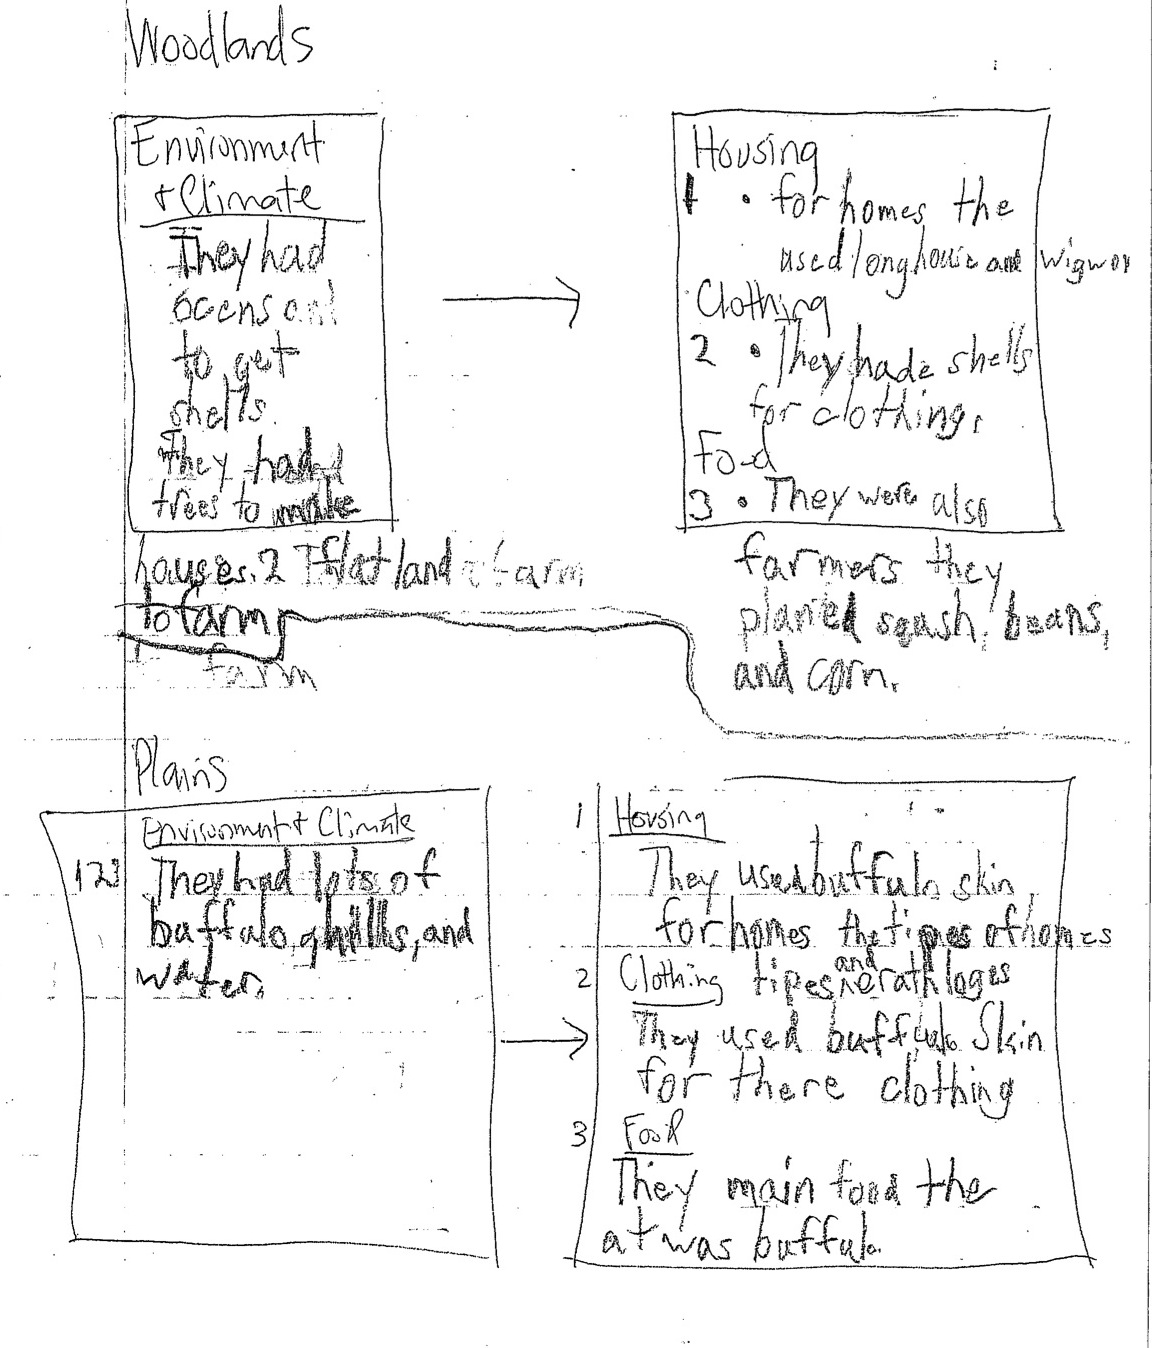 Woodlands
Environment
+ Climate
They had
ocens and
to get
shells.
They had
trees to make
houses. 2 flat land
to farm
farm
Housing
1 • for homes the
used longhouse and wigwom
Clothing
2 • They made shells
for clothing.
Food
3 • They were also
farmers they
planted sqash, beans,
and corn.
Plains
Environment + Climate
123 They had lots of
buffalo, hills, and
water.
1 Housing
They used buffulo skin
for homes the tipes of homes
tipes and erathloges
2 Clothing
They used buffulo Skin
for there clothing
3 Food
They main food the
at was buffulo.